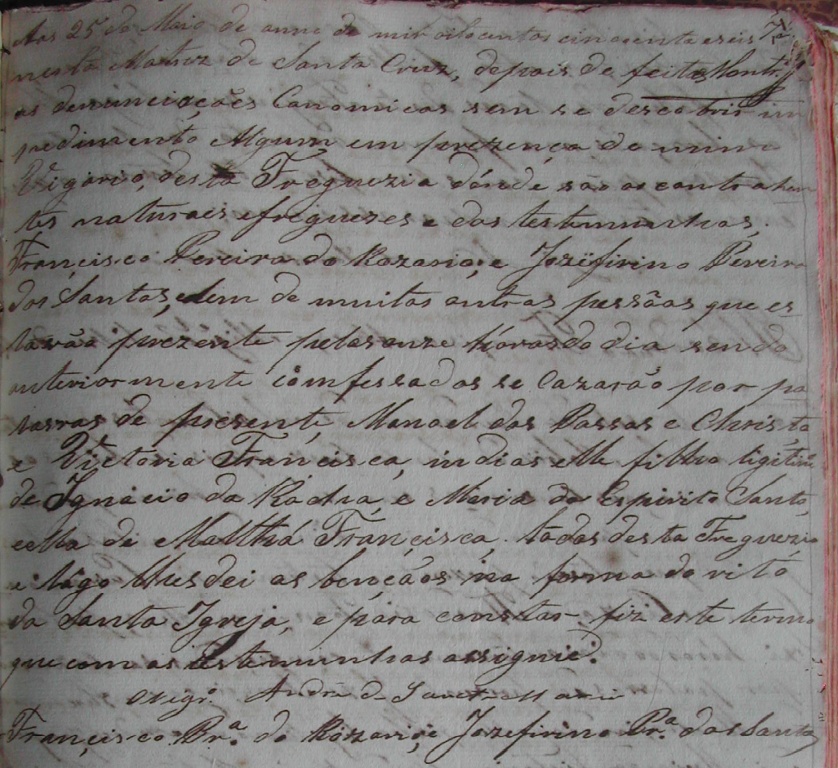 Aos 25 de Maio de anno de mir oitocentos cincoenta e seis
nesta Matriz de Santa Cruz, depois de feitas
as denunciações Canonicas sem se descobrir im
pedimento Algum em prezença de mim
Vigario, desta Freguezia dónde são os contrahen
tes naturaes e freguezes e das testemunhas,
Francisco Pereira do Rozario, e Jozefirino Pereira
dos Santos, alem de muitas outras pessôas que es
tavão prezente pelas onze hóras do dia sendo
anteriormente comfessados se Cazarão por pa
lavras de presente, Manoel dos Passos e Christo
e Victoria Francisca, indios elle filho ligitimo
de Ignácio da Rócha, e Maria do Espirito Santo,
e ella de Francisca, todos desta Freguezia
e lógo lhes dei as bençãos na forma do ritó
da Santa Igreja, e pára constar fiz este termo
que com as testemunhas assignei.
O Vigr.º André de
Francisco Pr.ª do Rózario, e Jozefirino Pr.ª dos Santos